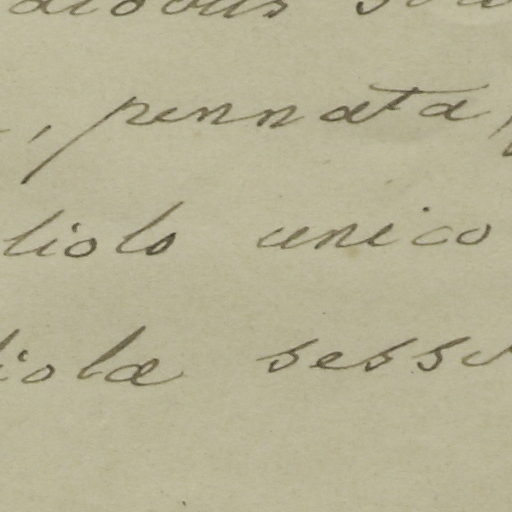 , pennata,
liolo unico
iolæ sess